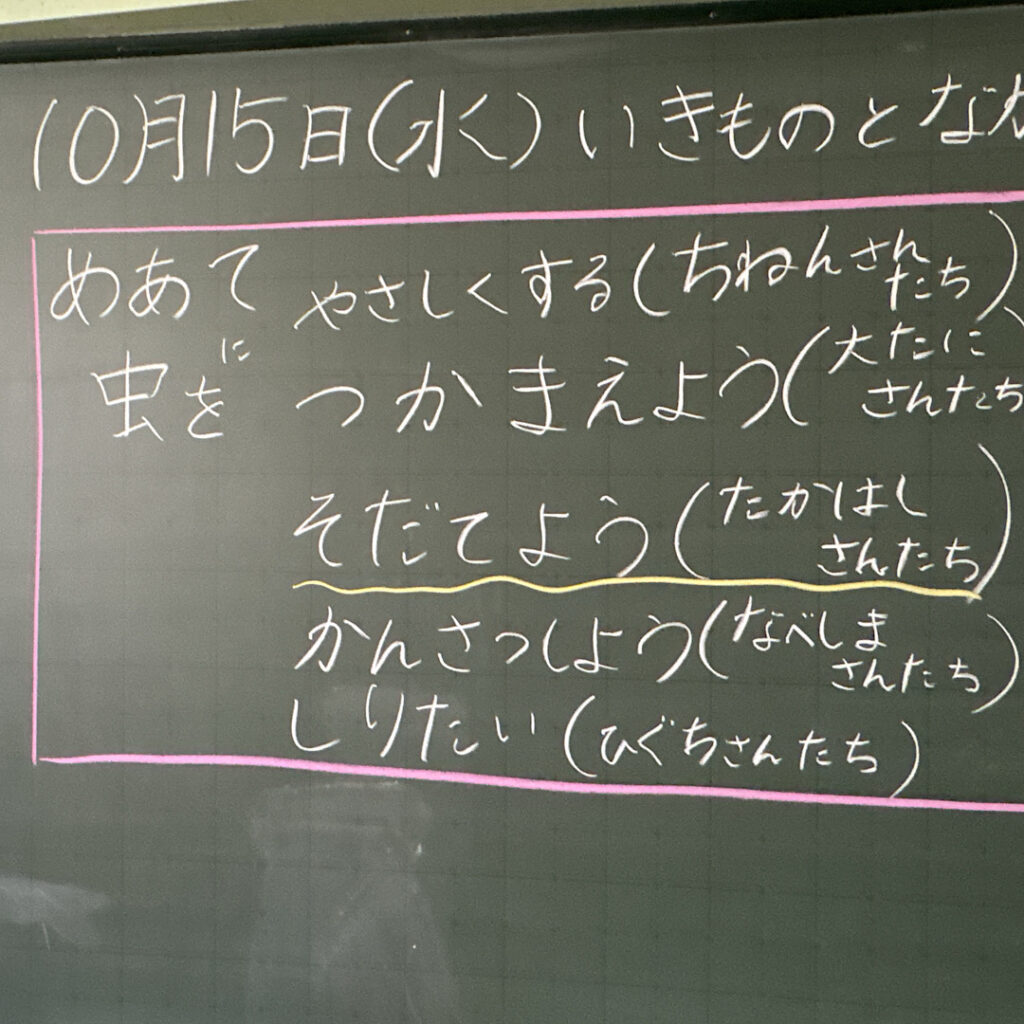 10月15日(水) いきものとなか
めあて やさしくする(ちねんさんたち)
虫を に つかまえよう(大たにさんたち
そだてよう(たかはしさんたち)
かんさつしよう(なべしまさんたち)
しりたい(ひぐちさんたち)